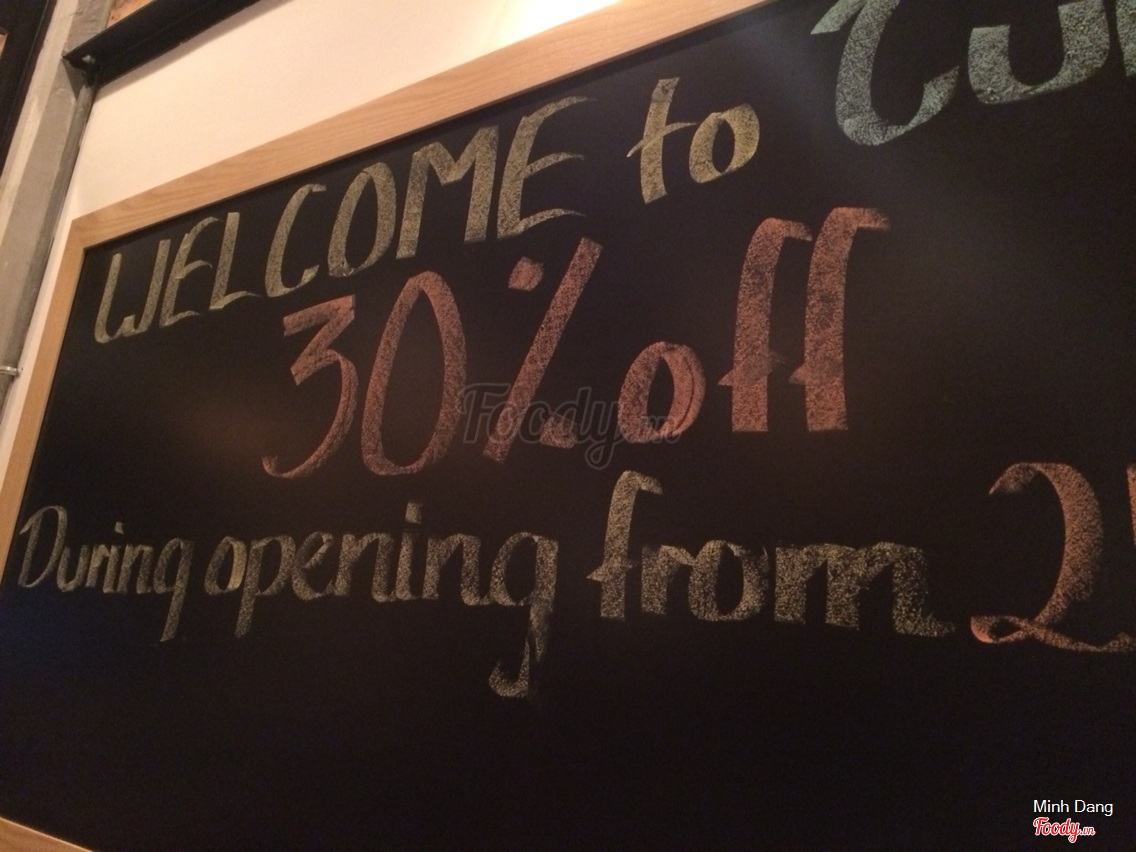 WELCOME to
30% off
During opening from 2
Foody.vn
Minh Dang
Foody.vn